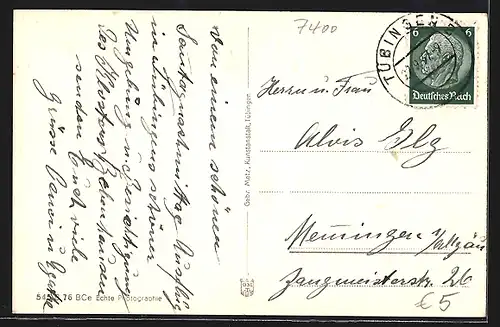 7400
TÜBINGEN
6 6
Deutsches Reich
Herrn und Frau
Alois Elg
Memmingen /Allgäu
Zangmeisterstr. 26
€5
Von einem schönen
Sonntagnachmittag Ausflug
in Tübingens schöner
Umgebung u. Besichtigung
des Klosters Bebenhausen
senden Euch viele
Grüsse
Gebr. Metz, Kunstanstalt, Tübingen
76 BCe Echte Photographie